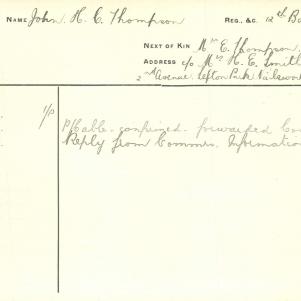 NAME John H. C. Thompson REG., &C. 12th Ba
NEXT OF KIN Mr E. Thompson,
ADDRESS c/o Mrs H. E. Smith
2nd Avenue, Sefton Park
1/p P/Cable confirmed forwarded
Reply from Commrs. Information